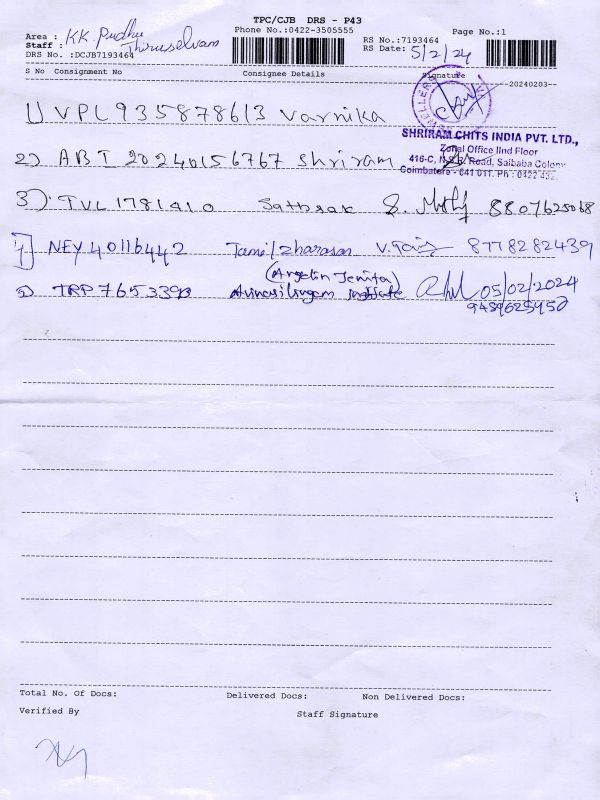 TPC/CJB DRS - P43
Area : KK. Pudhu
Phone No.:0422-3505555
Page No.:1
Staff : Thiruselvam
RS No.:7193464
DRS No. :DCJB7193464
RS Date: 5/2/24
S No Consignment No Consignee Details Signature
--20240203--
1) VPL935878613 Varnika
SHRIRAM CHITS INDIA PVT. LTD.,
Zonal Office IInd Floor
2) ABT 20240156767 Shriram
416-C, N.S.R. Road, Saibaba Colony
Coimbatore - 641 011. Ph : 0422 432
3) TVL1781410 8807625068
4) NEY 40116442 Tamilzharasan 8778282439
(Angelin Jenita)
5) TRP7653393 Avinasilingam institute 05/02/2024
9489625950
Total No. Of Docs: Delivered Docs: Non Delivered Docs:
Verified By Staff Signature